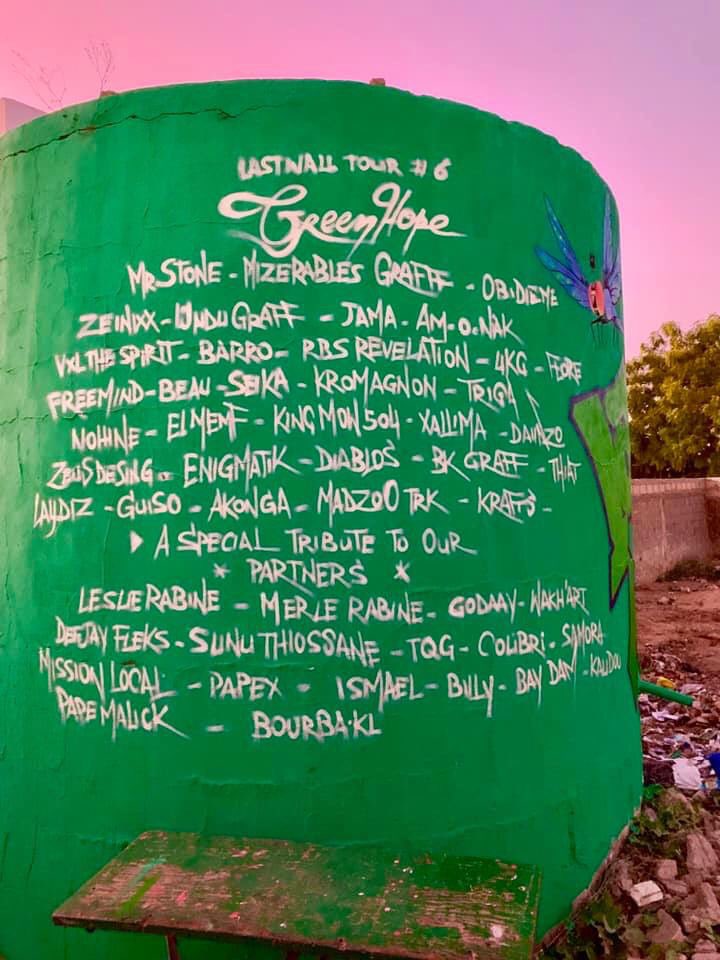 LASTWALL TOUR # 6
Green Hope
MR STONE - MIZERABLES GRAFFF - OBIDIEME
ZEINIXX - UNDU GRAFF - JAMA - AM-O-NAK
VXL THE SPIRIT - BARRO - RBS REVELATION - 4KG - FLORE
FREEMIND - BEAU - SEIKA - KROMAGNON - TRIGA
NOHINE - EL MEMF - KING MOW 504 - XALLIMA - DAWAZO
ZEUS DESING - ENIGMATIK - DIABLOS - BK GRAFF - THIAT
LAYDIZ - GUISO - AKONGA - MADZOO TRK - KRAFFS -
A SPECIAL TRIBUTE TO OUR
* PARTNERS *
LESLIE RABINE - MERLE RABINE - GODAAY - WAKH'ART
DEEJAY FLEKS - SUNU THIOSSANE - TQG - COLIBRI - SAMORA
MISSION LOCAL - PAPEX - ISMAEL - BILLY - BAY DAM - KALIDOU
PAPE MALICK - BOURBA-KL